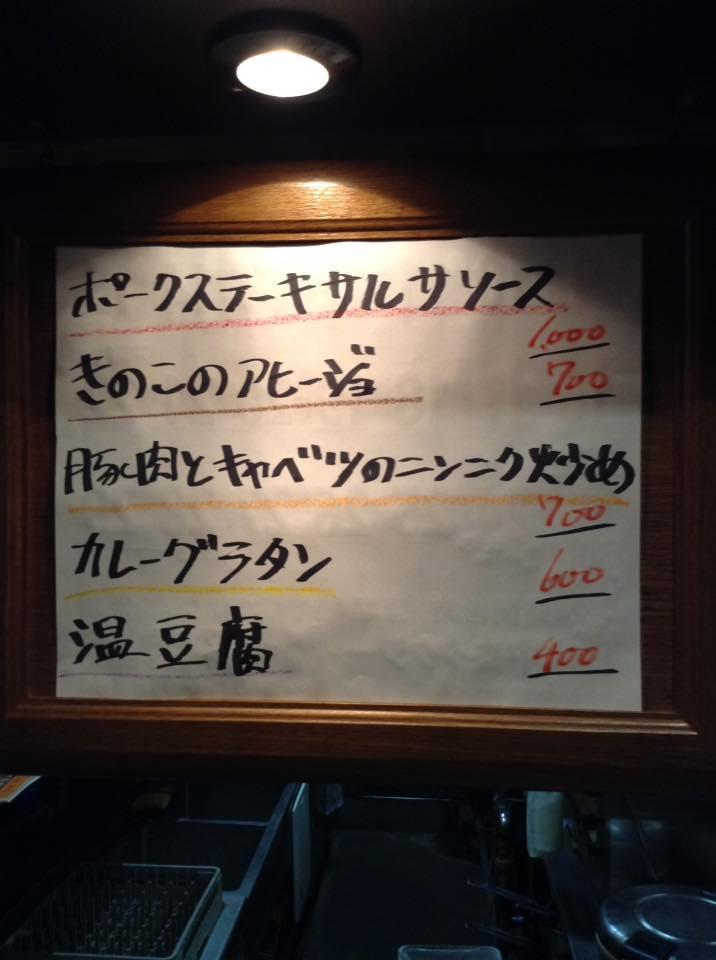 ポークステーキサルサソース
1,000
きのこのアヒージョ
700
豚肉とキャベツのニンニク炒め
700
カレーグラタン
600
温豆腐
400